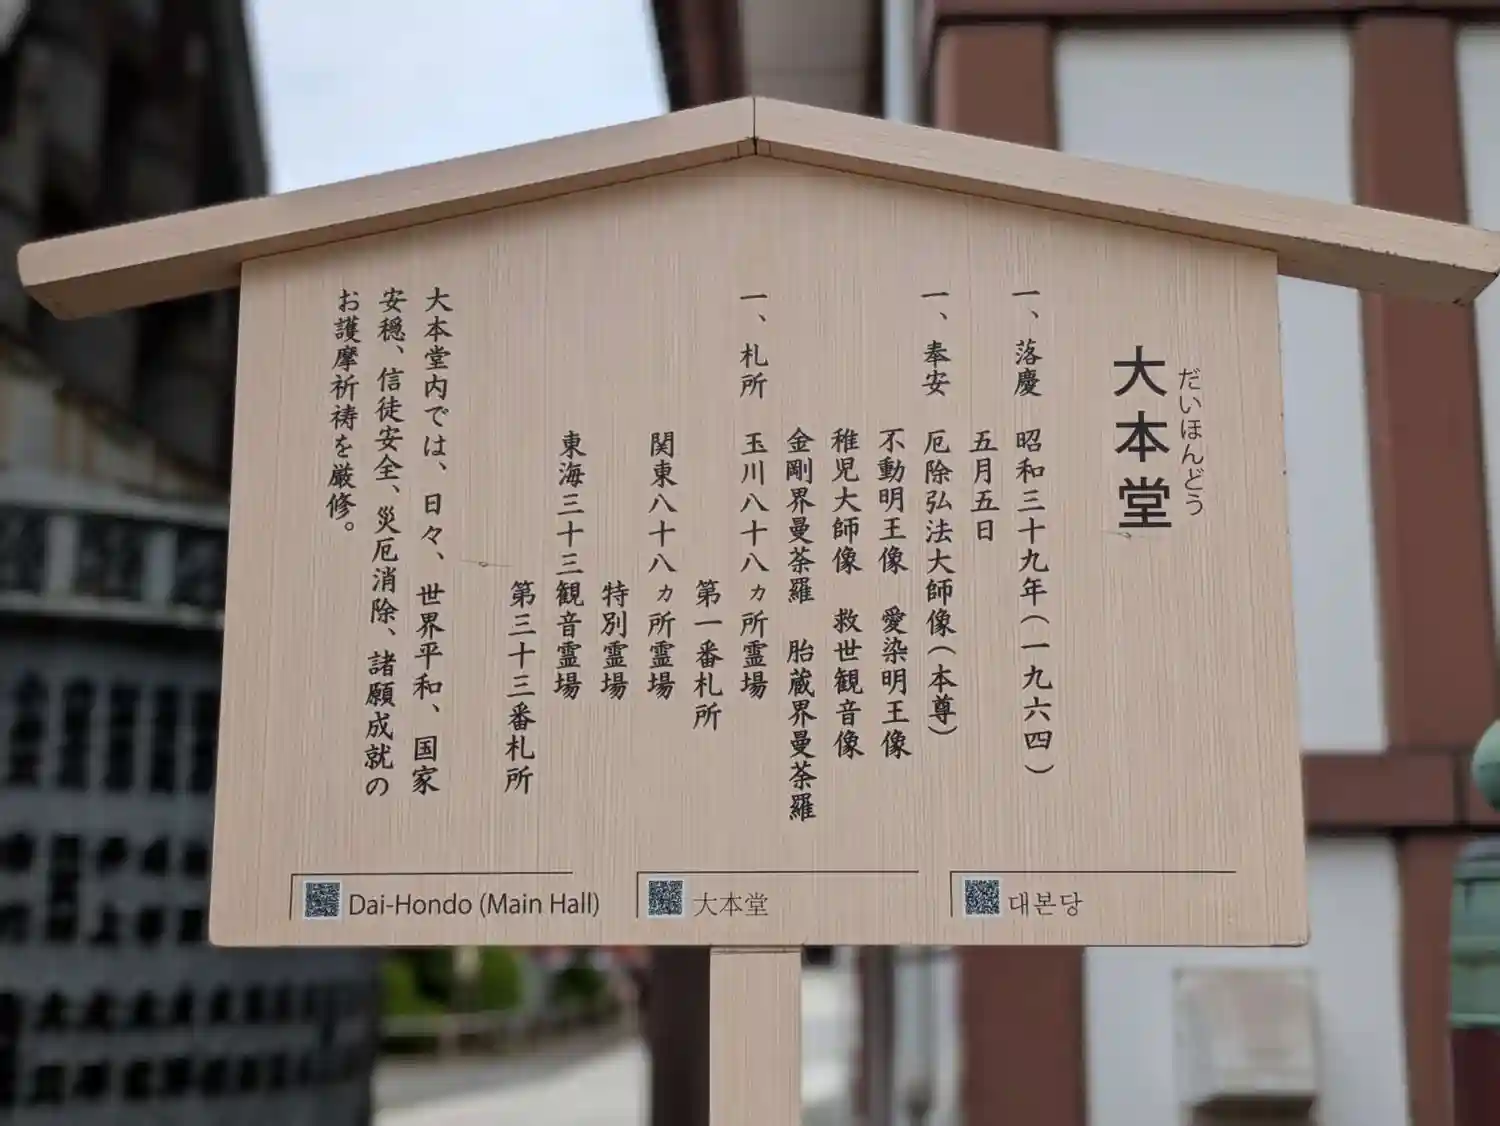 大本堂
だいほんどう
一、落慶 昭和三十九年(一九六四)
五月五日
一、奉安 厄除弘法大師像(本尊)
不動明王像 愛染明王像
稚児大師像 救世観音像
金剛界曼荼羅 胎蔵界曼荼羅
一、札所 玉川八十八ヵ所霊場
第一番札所
関東八十八ヵ所霊場
特別霊場
東海三十三観音霊場
第三十三番札所
大本堂内では、日々、世界平和、国家
安穏、信徒安全、災厄消除、諸願成就の
お護摩祈祷を厳修。
Dai-Hondo (Main Hall)
大本堂
대본당